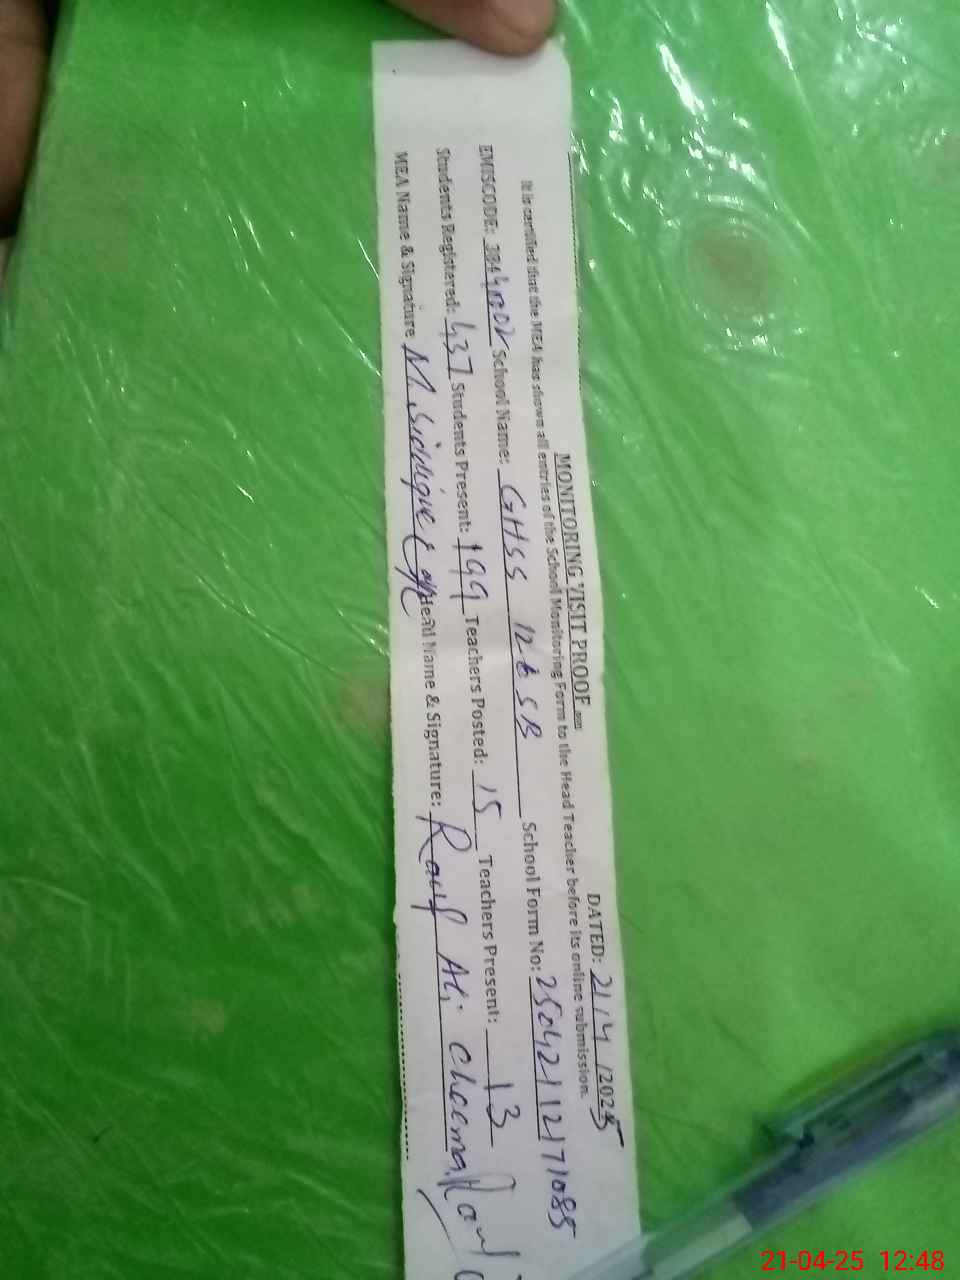 MONITORING VISIT PROOF DATED: 21/4/2025
It is certified that the MEA has shown all entries of the School Monitoring Form to the Head Teacher before its online submission.
EMISCODE: School Name: GHSS 12 SB School Form No:
Students Registered: 437 Students Present: 199 Teachers Posted: 15 Teachers Present: 13
MEA Name & Signature M. Siddique Head Name & Signature: Rauf Ali Cheema
21-04-25 12:48